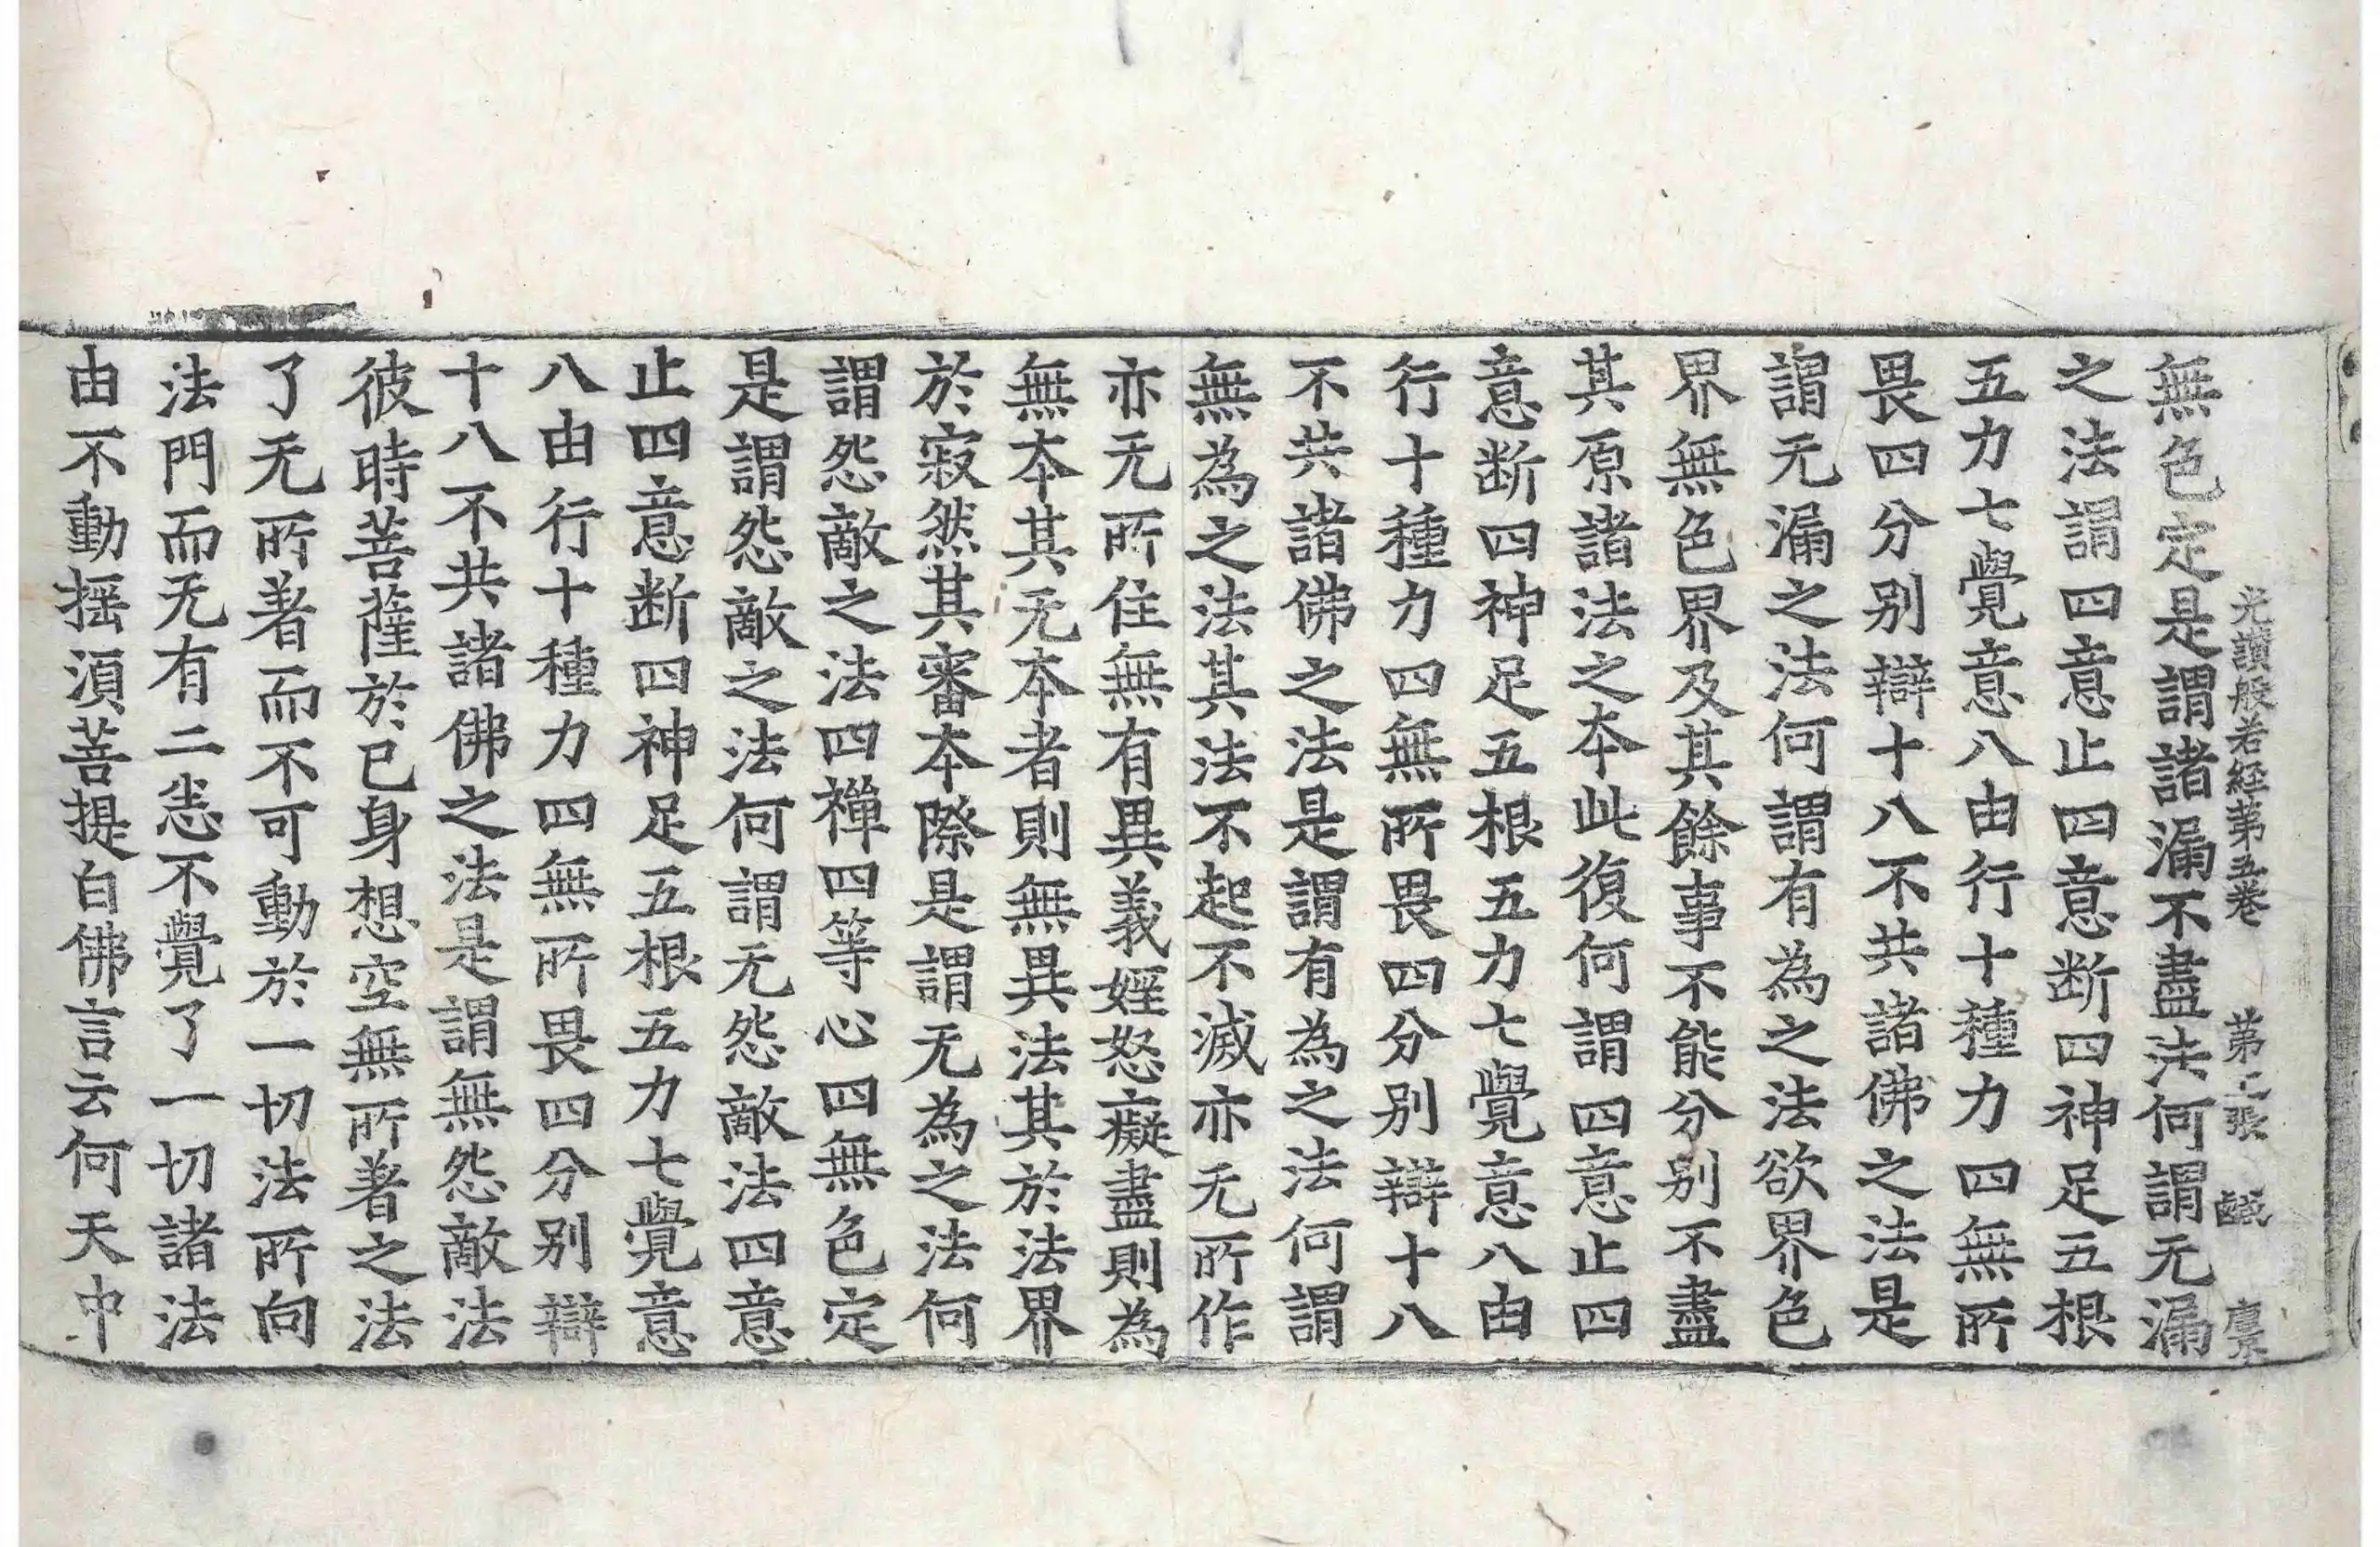 光讚般若經第五卷 第二張 鹹
無色定是謂諸漏不盡法何謂无漏
之法謂四意止四意断四神足五根
五力七覺意八由行十種力四無所
畏四分别辯十八不共諸佛之法是
謂无漏之法何謂有為之法欲界色
界無色界及其餘事不能分别不盡
其原諸法之本此復何謂四意止四
意断四神足五根五力七覺意八由
行十種力四無所畏四分别辯十八
不共諸佛之法是謂有為之法何謂
無為之法其法不起不滅亦无所作
亦无所住無有異義婬怒癡盡則為
無本其无本者則無異法其於法界
於寂然其審本際是謂无為之法何
謂怨敵之法四禪四等心四無色定
是謂怨敵之法何謂无怨敵法四意
止四意断四神足五根五力七覺意
八由行十種力四無所畏四分别辯
十八不共諸佛之法是謂無怨敵法
彼時菩薩於已身想空無所著之法
了无所著而不可動於一切法所向
法門而无有二恙不覺了一切諸法
由不動揺湏菩提白佛言云何天中